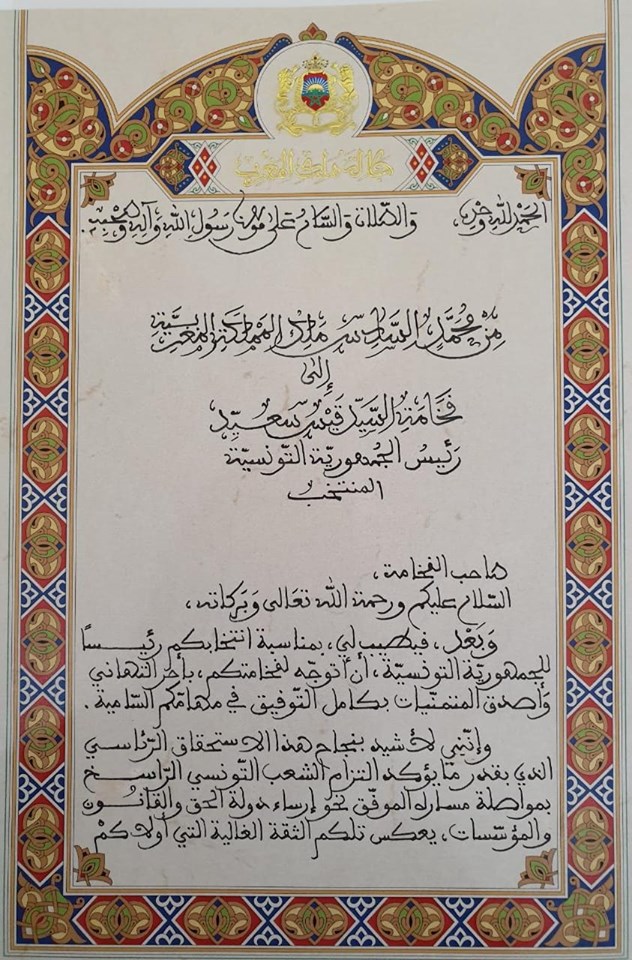 جلالة ملك المغرب
الحمد لله وحده، والصلاة والسلام على مولانا رسول الله وآله وصحبه.
من محمد السادس ملك المملكة المغربية
إلى
فخامة السيد قيس سعيد
رئيس الجمهورية التونسية
المنتخب
صاحب الفخامة،
السلام عليكم ورحمة الله تعالى وبركاته،
وبعد، فيطيب لي، بمناسبة انتخابكم رئيسا
للجمهورية التونسية، أن أتوجه لفخامتكم، بأحر التهاني
وأصدق المتمنيات بكامل التوفيق في مهامكم السامية.
وإنني لأشيد بنجاح هذا الاستحقاق الرئاسي
الذي بقدر ما يؤكد التزام الشعب التونسي الراسخ
بمواصلة مساره الموفق نحو إرساء دولة الحق والقانون
والمؤسسات، يعكس تلكم الثقة الغالية التي أولاكم